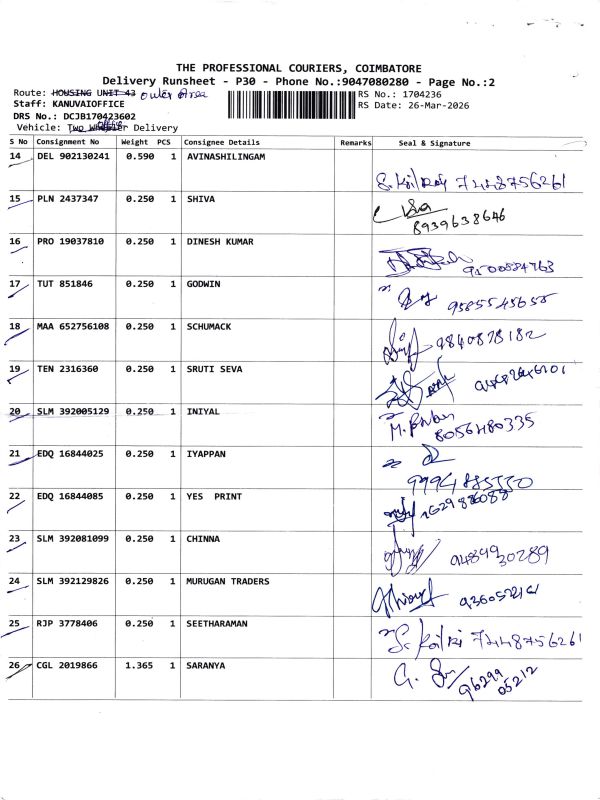 THE PROFESSIONAL COURIERS, COIMBATORE
Delivery Runsheet - P30 - Phone No.:9047080280 - Page No.:2
Route: HOUSING UNIT 43 Outer Area
RS No.: 1704236
Staff: KANUVAIOFFICE
RS Date: 26-Mar-2026
DRS No.: DCJB170423602
Vehicle: Two Wheeler Delivery
S No Consignment No Weight PCS Consignee Details Remarks Seal & Signature
14 DEL 902130241 0.590 1 AVINASHILINGAM 7448756261
15 PLN 2437347 0.250 1 SHIVA 8939638646
16 PRO 19037810 0.250 1 DINESH KUMAR
17 TUT 851846 0.250 1 GODWIN 9585545658
18 MAA 652756108 0.250 1 SCHUMACK 9840878182
19 TEN 2316360 0.250 1 SRUTI SEVA
20 SLM 392005129 0.250 1 INIYAL 8056480335
21 EDQ 16844025 0.250 1 IYAPPAN 9994885330
22 EDQ 16844085 0.250 1 YES PRINT
23 SLM 392081099 0.250 1 CHINNA 9489930289
24 SLM 392129826 0.250 1 MURUGAN TRADERS
25 RJP 3778406 0.250 1 SEETHARAMAN 7448756261
26 CGL 2019866 1.365 1 SARANYA 96299
05212